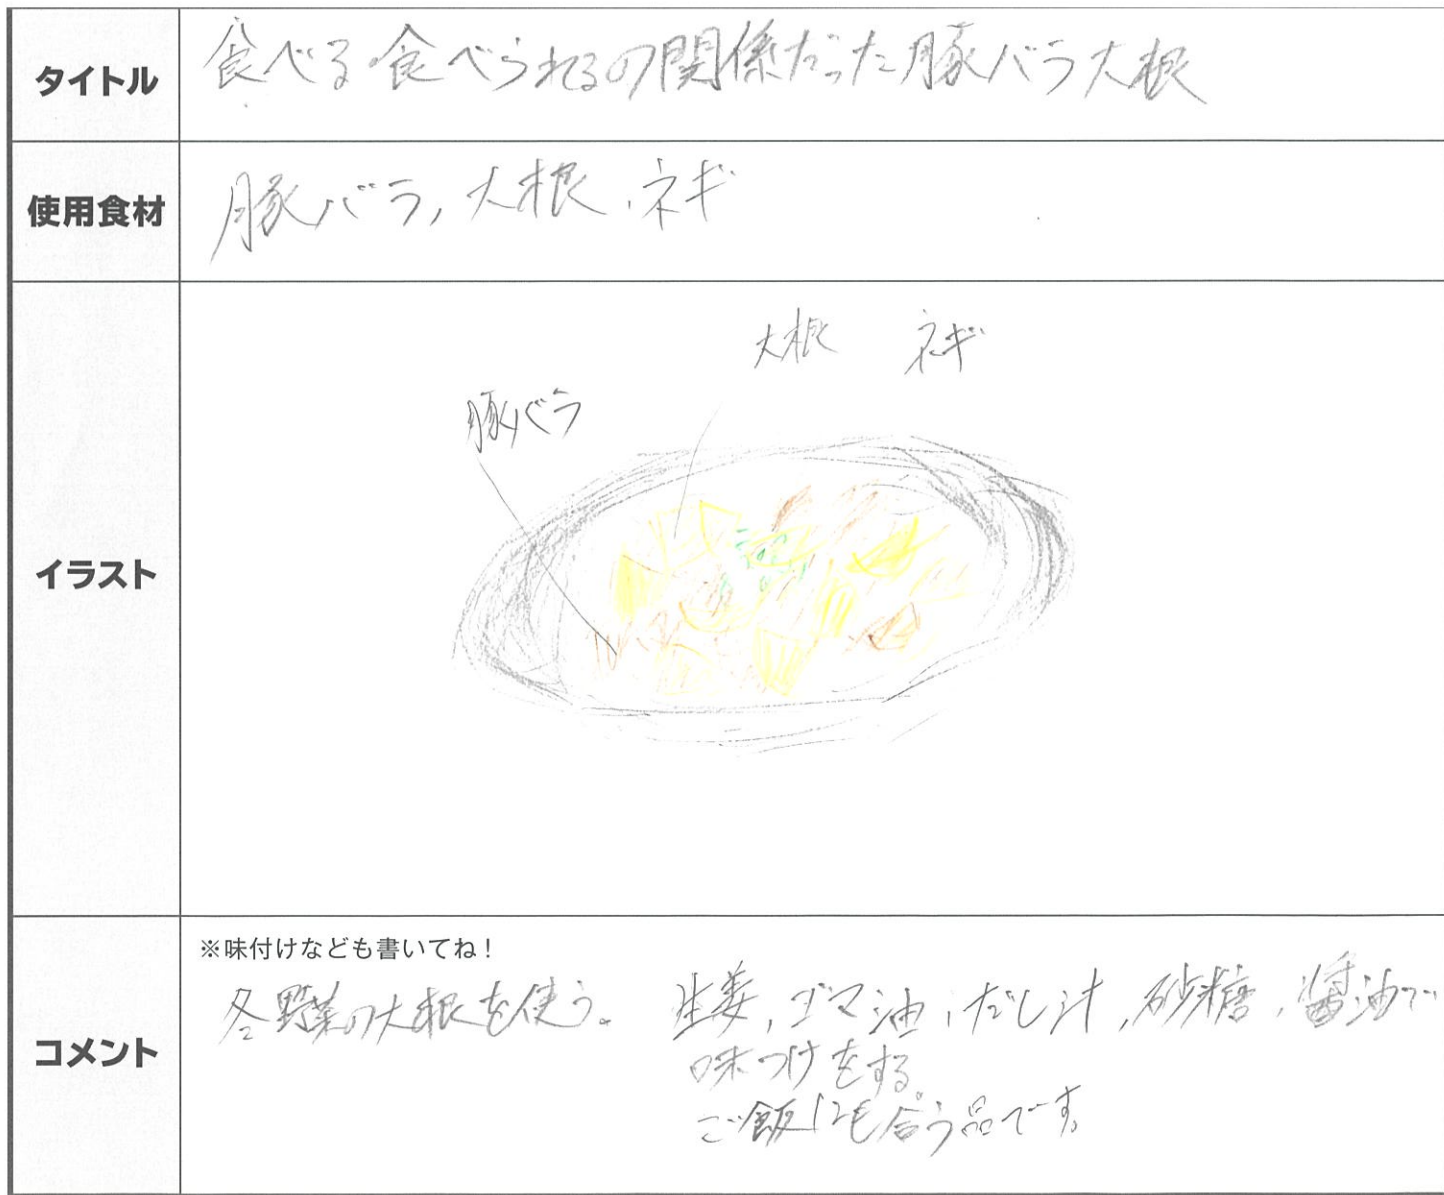 タイトル
食べる食べられるの関係だった豚バラ大根
使用食材
豚バラ,大根、ネギ
イラスト
大根 ネギ
豚バラ
コメント
※味付けなども書いてね!
冬野菜の大根を使う。 生姜,ゴマ油,だし汁,砂糖,醤油で
味つけをする。
ご飯にも合う品です。